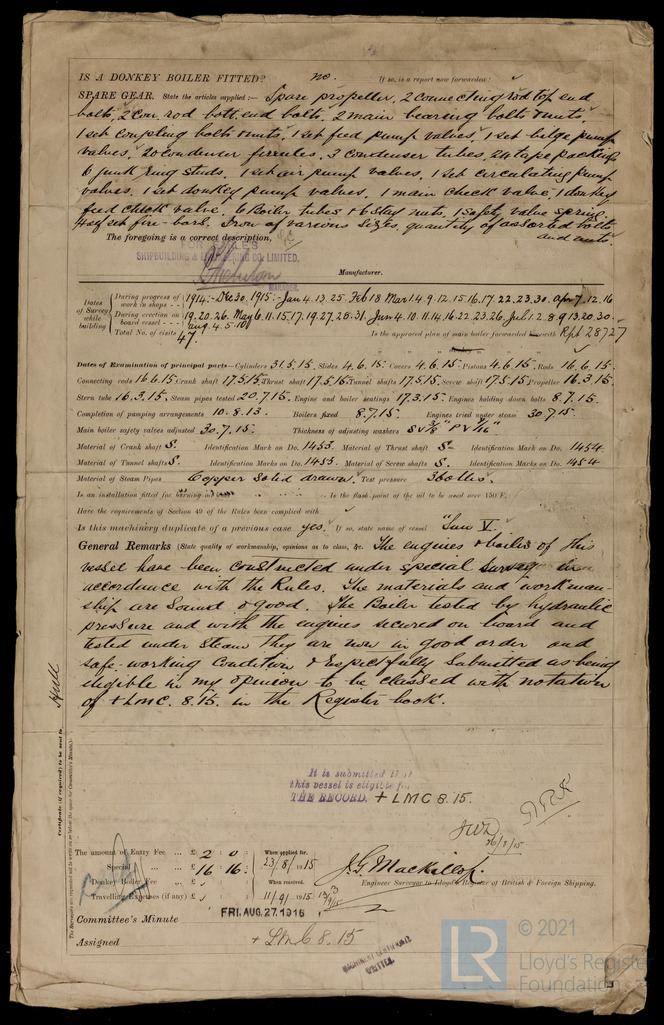 IS A DONKEY BOILER FITTED? no. If so, is a report now forwarded?
SPARE GEAR. State the articles supplied:— Spare propeller, 2 connecting rod top end
bolts, 2 con. rod bott. end bolts, 2 main bearing bolts & nuts,
1 set coupling bolts & nuts, 1 set feed pump valves, 1 set bilge pump
valves, 20 condenser ferrules, 3 condenser tubes, 24 tape packings
6 junk ring studs, 1 set air pump valves, 1 set circulating pump
valves, 1 set donkey pump valves, 1 main check valve, 1 donkey
feed check valve, 6 Boiler tubes & 6 stay nuts, 1 safety valve spring,
set fire-bars. Iron of various sizes, quantity of assorted bolts
and nuts.
The foregoing is a correct description,
SHIPBUILDING & ENGINEERING CO. LIMITED,
MANAGER.
Manufacturer.
Dates of Survey while building
During progress of work in shops - - 1914:- Dec 30. 1915:- Jan 4. 13. 25. Feb 18 Mar 1. 4. 9. 12. 15. 16. 17. 22. 23. 30. Apr 7. 12. 16
During erection on board vessel - - - 19. 20. 26. May 6. 11. 15. 17. 19. 27. 28. 31. Jun 4. 10. 11. 14. 16. 22. 23. 26. Jul 1. 2. 8. 9. 13. 20. 30.
Aug. 4. 5. 10
Total No. of visits 47. Is the approved plan of main boiler forwarded herewith Rpt 28727
Dates of Examination of principal parts—Cylinders 31.5.15. Slides 4.6.15. Covers 4.6.15. Pistons 4.6.15. Rods 16.6.15.
Connecting rods 16.6.15 Crank shaft 17.5.15. Thrust shaft 17.5.15. Tunnel shafts 17.5.15. Screw shaft 17.5.15 Propeller 16.3.15.
Stern tube 16.3.15. Steam pipes tested 20.7.15. Engine and boiler seatings 17.3.15. Engines holding down bolts 8.7.15.
Completion of pumping arrangements 10.8.13. Boilers fixed 8.7.15. Engines tried under steam 30.7.15.
Main boiler safety valves adjusted 30.7.15. Thickness of adjusting washers
Material of Crank shaft S. Identification Mark on Do. 1453. Material of Thrust shaft S. Identification Mark on Do. 1454.
Material of Tunnel shafts S. Identification Marks on Do. 1453. Material of Screw shafts S. Identification Marks on Do. 1454
Material of Steam Pipes Copper solid drawn. Test pressure 360 lbs.
Is an installation fitted for burning oil Is the flash point of the oil to be used over 150°F.
Have the requirements of Section 49 of the Rules been complied with
Is this machinery duplicate of a previous case yes. If so, state name of vessel "Sun V."
General Remarks (State quality of workmanship, opinions as to class, &c. The engines & boiler of this
vessel have been constructed under special survey in
accordance with the Rules. The materials and workman-
ship are sound & good. The Boiler tested by hydraulic
pressure and with the engines secured on board and
tested under steam they are now in good order and
safe working condition & respectfully submitted as being
eligible in my opinion to be classed with notation
of + LMC. 8.15. in the Register book.
Certificate (if required) to be sent to Hull
It is submitted that
this vessel is eligible for
THE RECORD. + LMC 8.15.
JWD
26/8/15
The amount of Entry Fee ... £ 2 : 0 : When applied for.
Special ... £ 16 : 16 : 23/8/1915
Donkey Boiler Fee ... £ When received.
Travelling Expenses (if any) £ 11/9/1915
J.G. Mackillop.
Engineer Surveyor to Lloyd's Register of British & Foreign Shipping.
Committee's Minute FRI. AUG. 27. 1915
Assigned + LMC 8.15
MACHINERY CERTIFICATE
WRITTEN.
© 2021
LR Lloyd's Register
Foundation